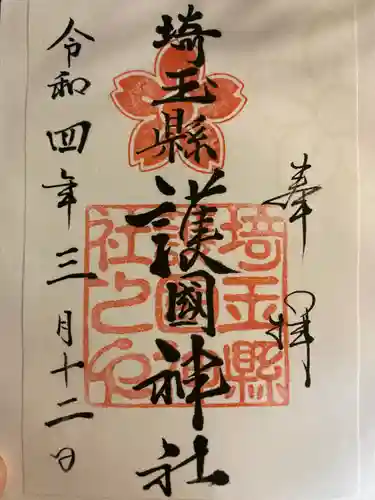 奉拝
埼玉縣護國神社
令和四年三月十二日
埼玉縣護國神社之印